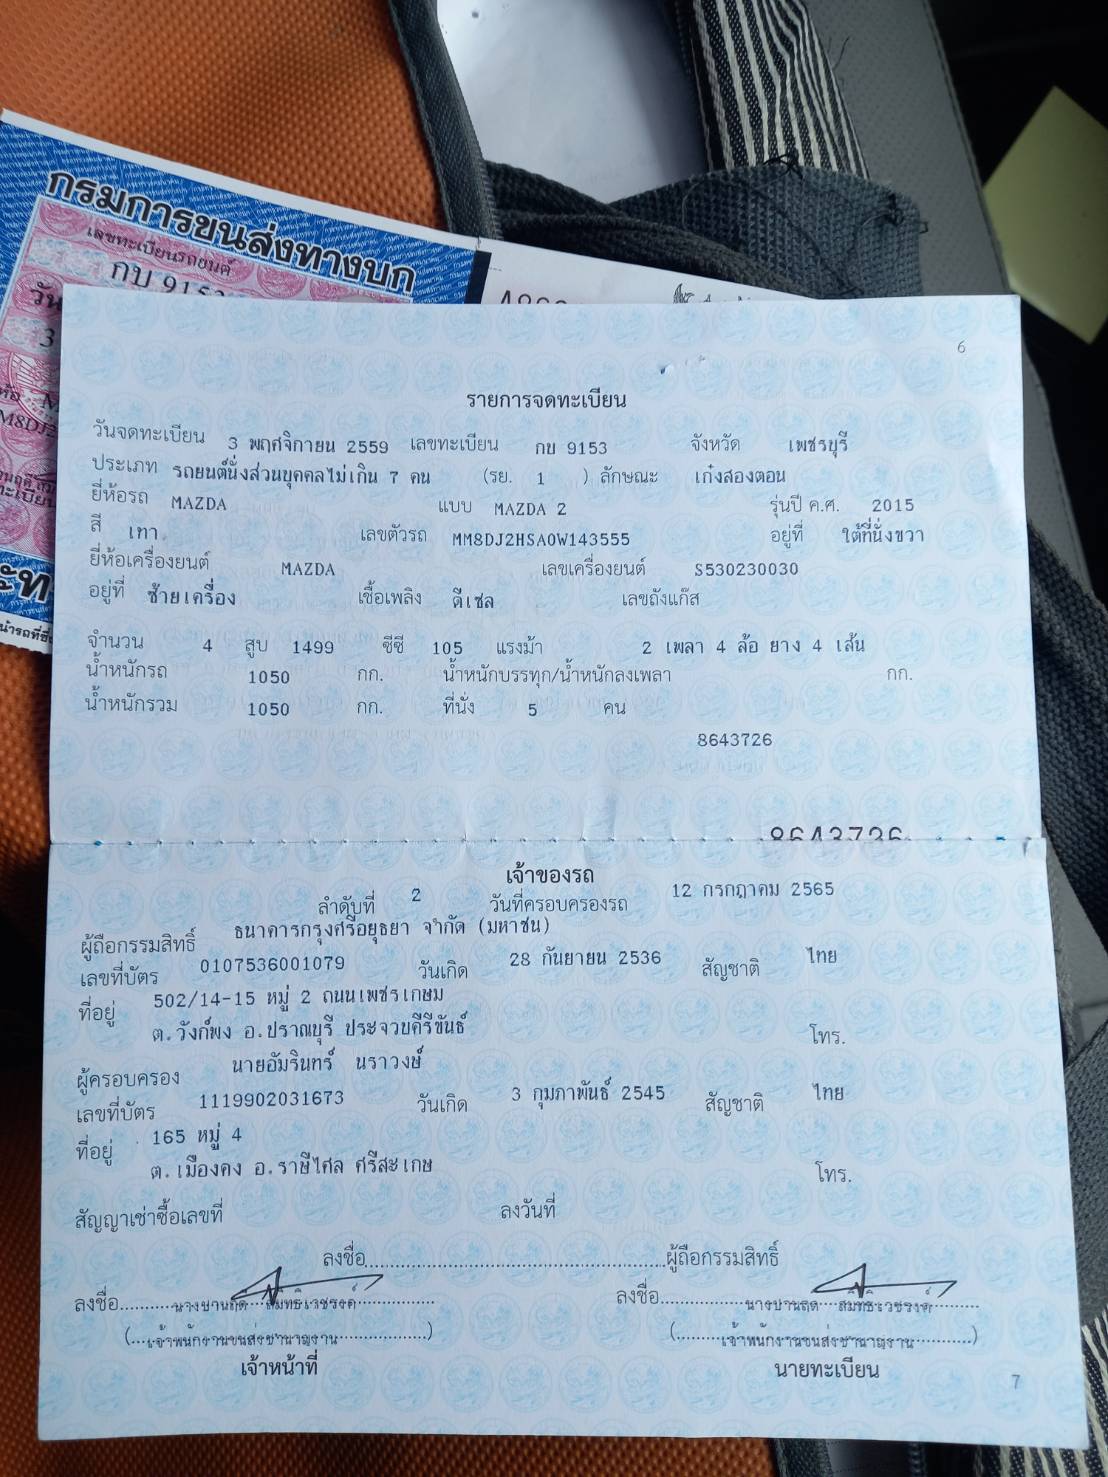 กรมการขนส่งทางบก
เลขทะเบียนรถยนต์
กบ 9153
6
รายการจดทะเบียน
วันจดทะเบียน 3 พฤศจิกายน 2559 เลขทะเบียน กบ 9153 จังหวัด เพชรบุรี
ประเภท รถยนต์นั่งส่วนบุคคลไม่เกิน 7 คน (รย. 1 ) ลักษณะ เก๋งสองตอน
ยี่ห้อรถ MAZDA แบบ MAZDA 2 รุ่นปี ค.ศ. 2015
สี เทา. เลขตัวรถ MM8DJ2HSA0W143555 อยู่ที่ ใต้ที่นั่งขวา
ยี่ห้อเครื่องยนต์ MAZDA เลขเครื่องยนต์ S530230030
อยู่ที่ ซ้ายเครื่อง เชื้อเพลิง ดีเซล เลขถังแก๊ส
จำนวน 4 สูบ 1499 ซีซี 105 แรงม้า 2 เพลา 4 ล้อ ยาง 4 เส้น
น้ำหนักรถ 1050 กก. น้ำหนักบรรทุก/น้ำหนักลงเพลา กก.
น้ำหนักรวม 1050 กก. ที่นั่ง 5 คน
8643726
8643726
เจ้าของรถ
ลำดับที่ 2 วันที่ครอบครองรถ 12 กรกฎาคม 2565
ผู้ถือกรรมสิทธิ์ ธนาคารกรุงศรีอยุธยา จำกัด (มหาชน)
เลขที่บัตร 0107536001079 วันเกิด 28 กันยายน 2536 สัญชาติ ไทย
ที่อยู่ 502/14-15 หมู่ 2 ถนนเพชรเกษม
ต.วังก์พง อ.ปราณบุรี ประจวบคีรีขันธ์ โทร.
ผู้ครอบครอง นายอัมรินทร์ นราวงษ์
เลขที่บัตร 1119902031673 วันเกิด 3 กุมภาพันธ์ 2545 สัญชาติ ไทย
ที่อยู่ 165 หมู่ 4
ต.เมืองคง อ.ราษีไศล ศรีสะเกษ โทร.
สัญญาเช่าซื้อเลขที่ ลงวันที่
ลงชื่อ ผู้ถือกรรมสิทธิ์
ลงชื่อ ลงชื่อ
(เจ้าพนักงานขนส่งชำนาญงาน) (เจ้าพนักงานขนส่งชำนาญงาน)
เจ้าหน้าที่ นายทะเบียน
7